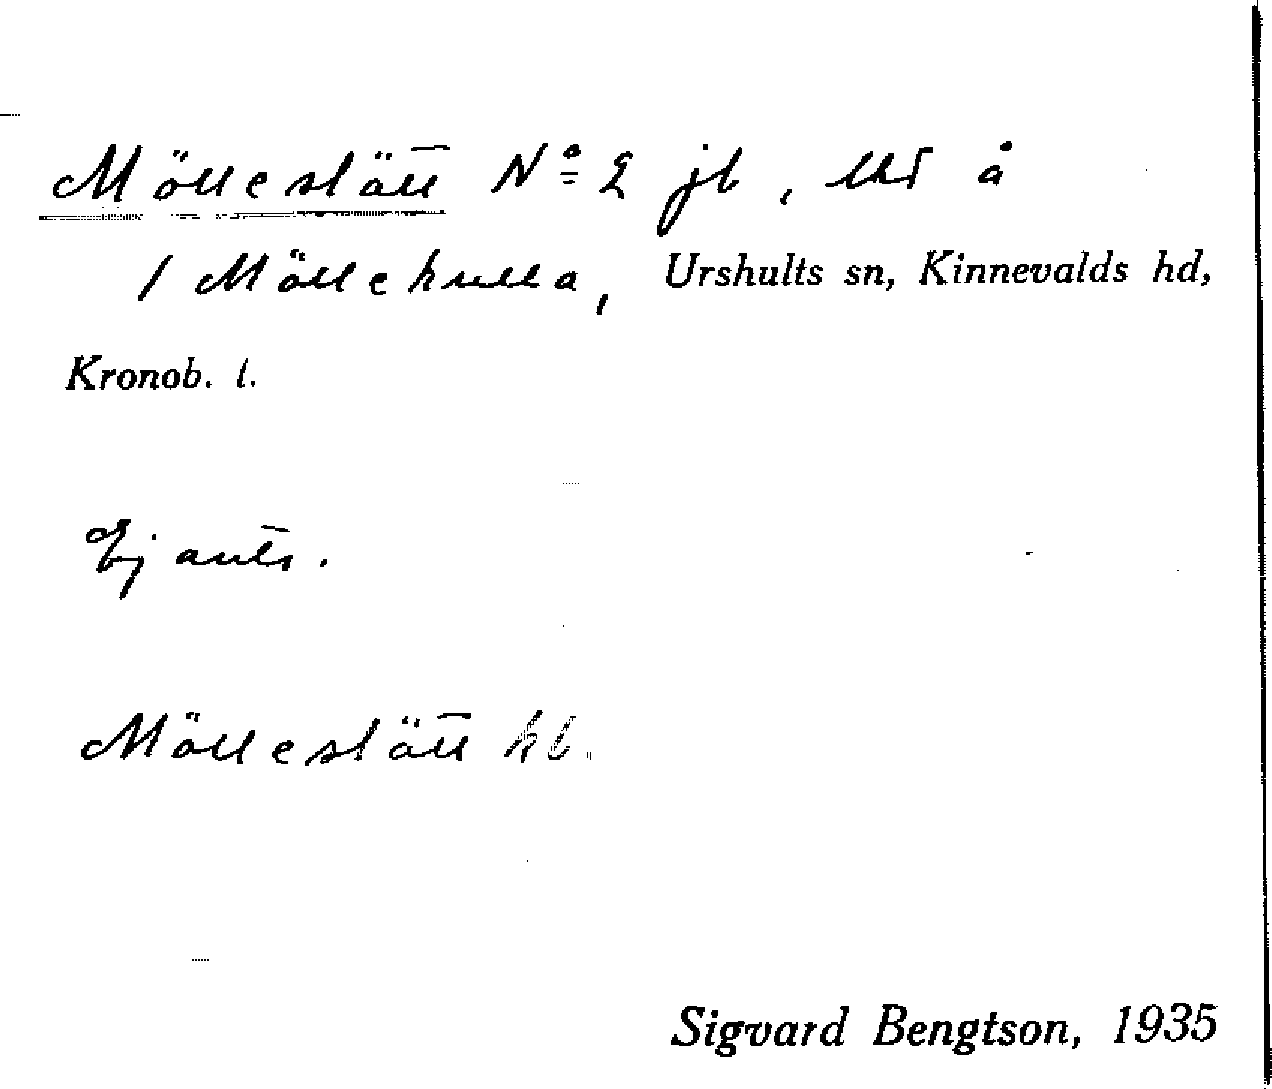 Möllestätt Nº 2 jb, Uts å
1 Möllekulla, Urshults sn, Kinnevalds hd,
Kronob. l.
Ej ants.
Möllestätt hb.
Sigvard Bengtson, 1935